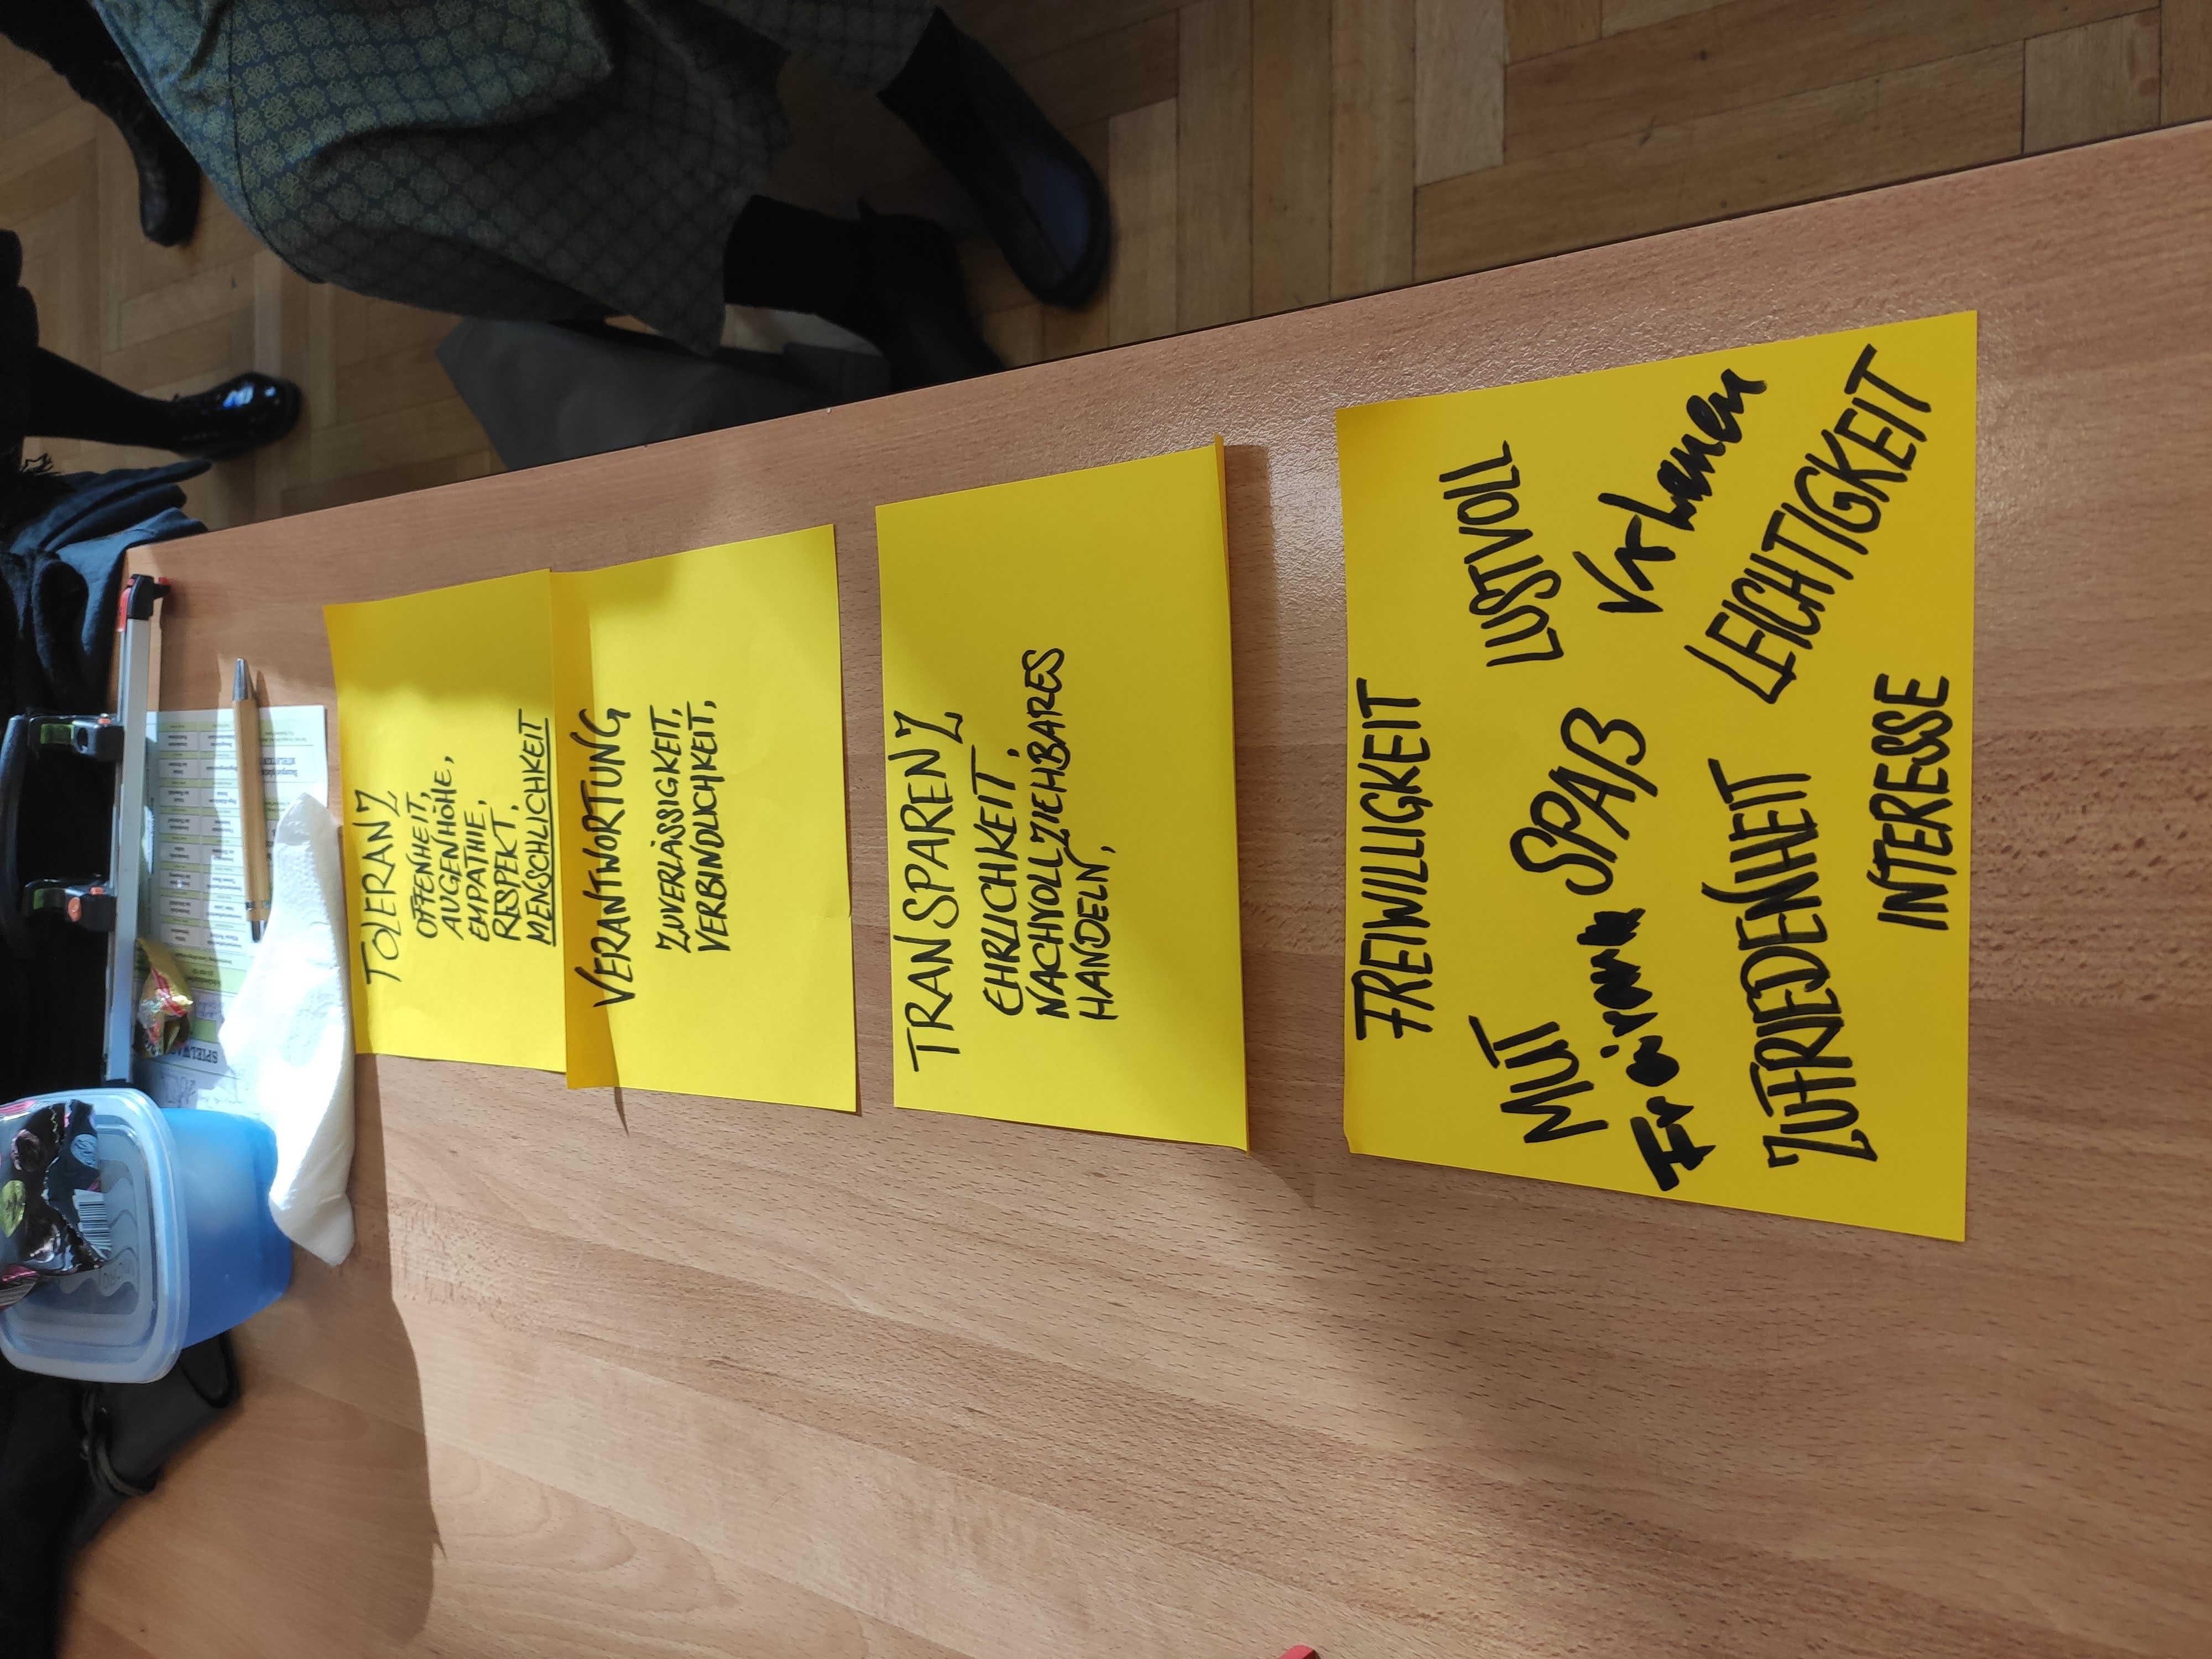 TOLERANZ
OFFENHEIT,
AUGENHÖHE,
EMPATHIE,
RESPEKT,
MENSCHLICHKEIT
VERANTWORTUNG
ZUVERLÄSSIGKEIT,
VERBINDLICHKEIT,
TRANSPARENZ
EHRLICHKEIT,
NACHVOLLZIEHBARES
HANDELN,
FREIWILLIGKEIT
MUT
LUSTVOLL
SPAß
ZUFRIEDENHEIT
LEICHTIGKEIT
INTERESSE